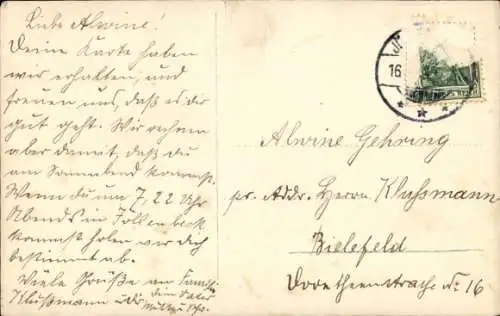 Liebe Alwine!
Deine Karte haben
wir erhalten, und
freuen uns, daß es dir
gut geht. Wir rechnen
aber damit, daß du
am Sonnabend kommst.
Wenn du um 7,22 Uhr
Abends in Jöllenbeck
kommst holen wir dich
bestimmt ab.
Viele Grüße an Famili
Klußmann u. dir dein Vater
Mutter u.
16
Alwine Gehring
pr. Addr. Herrn Klussmann
Bielefeld
Dorotheenstrasse No 16